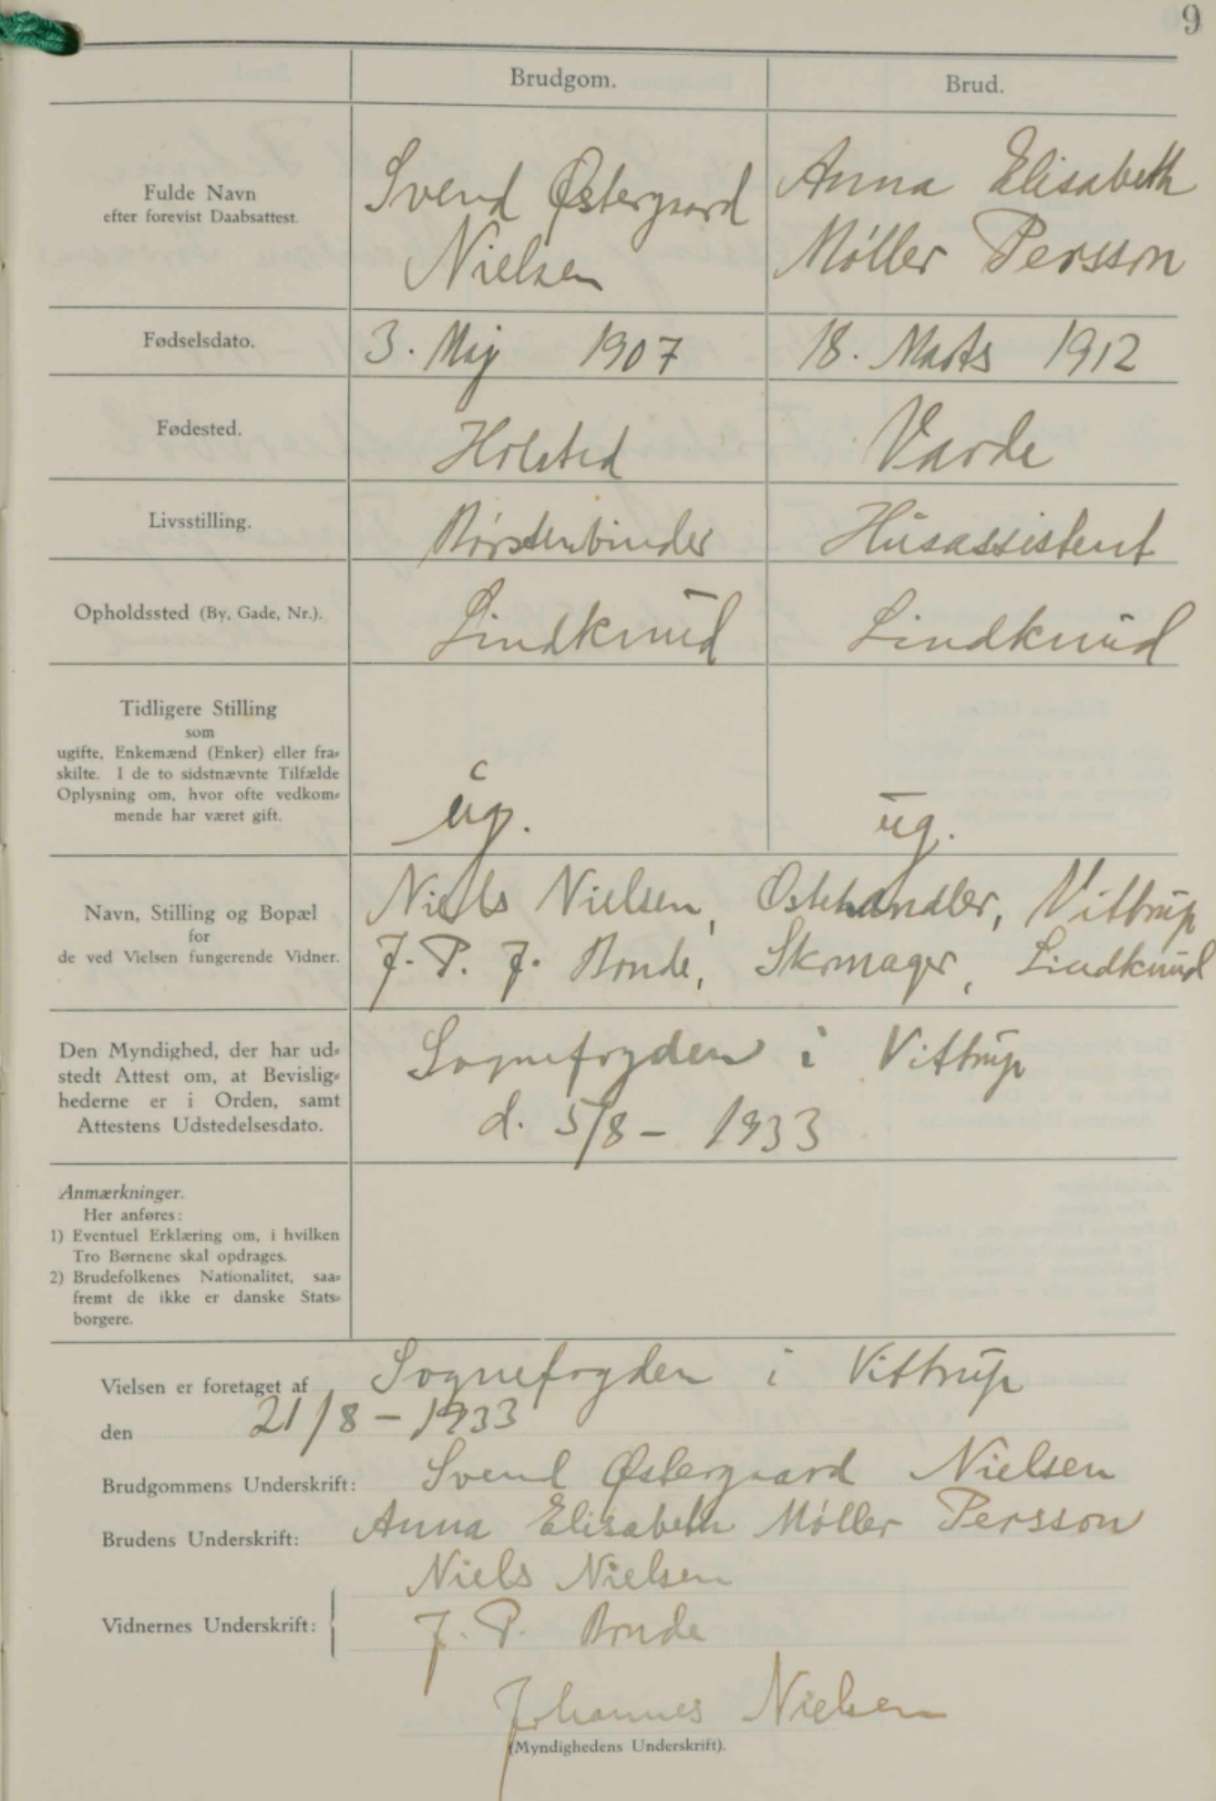 9
Brudgom.
Brud.
Fulde Navn
efter forevist Daabsattest.
Svend Østergaard
Nielsen
Anna Elisabeth
Møller Persson
Fødselsdato.
3. Maj 1907
18. Marts 1912
Fødested.
Holsted
Varde
Livsstilling.
Børstenbinder
Husassistent
Opholdssted (By, Gade, Nr.).
Lindknud
Lindknud
Tidligere Stilling
som
ugifte, Enkemænd (Enker) eller fra-
skilte. I de to sidstnævnte Tilfælde
Oplysning om, hvor ofte vedkom-
mende har været gift.
ug.
ug.
Navn, Stilling og Bopæl
for
de ved Vielsen fungerende Vidner.
Niels Nielsen, Ostehandler, Vittrup
J. P. J. Brude, Skomager, Lindknud
Den Myndighed, der har ud-
stedt Attest om, at Bevislig-
hederne er i Orden, samt
Attestens Udstedelsesdato.
Sognefogden i Vittrup
d. 5/8 - 1933
Anmærkninger.
Her anføres:
1) Eventuel Erklæring om, i hvilken
Tro Børnene skal opdrages.
2) Brudefolkenes Nationalitet, saa-
fremt de ikke er danske Stats-
borgere.
Vielsen er foretaget af Sognefogden i Vittrup
den 21/8 - 1933
Brudgommens Underskrift: Svend Østergaard Nielsen
Brudens Underskrift: Anna Elisabeth Møller Persson
Niels Nielsen
Vidnernes Underskrift: J. P. Brude
Johannes Nielsen
(Myndighedens Underskrift).